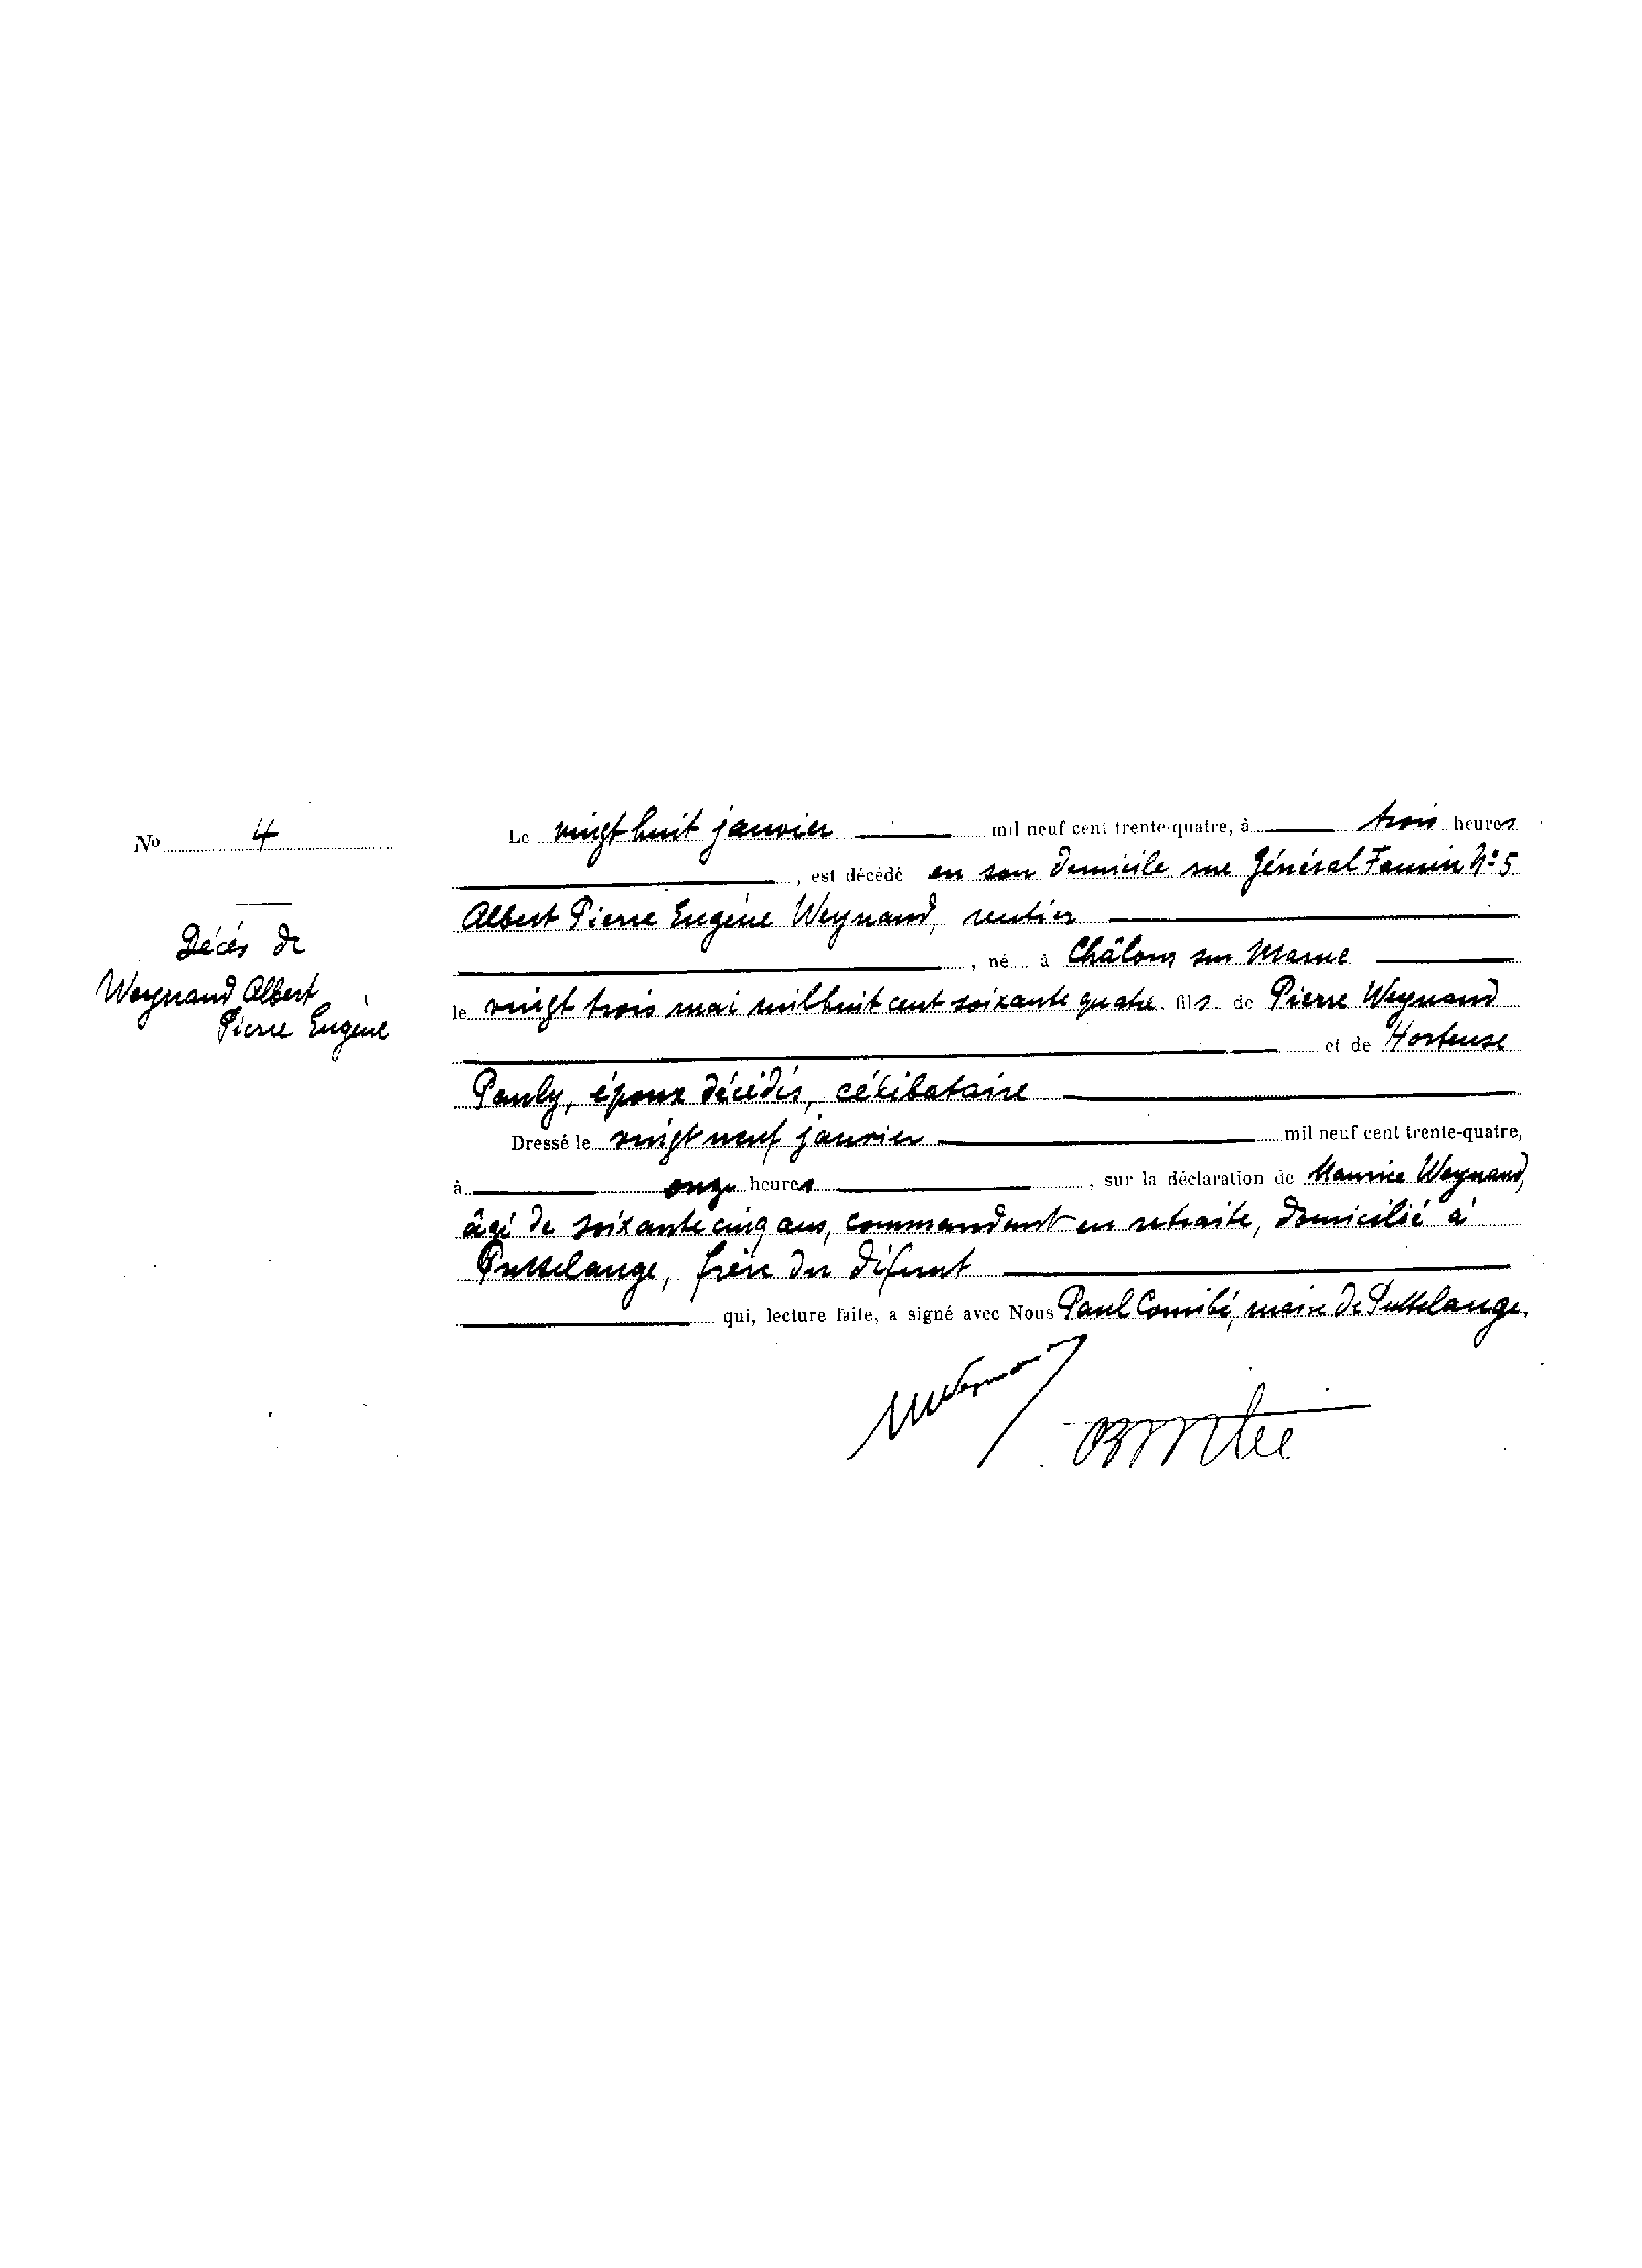 No 4
Décès de
Weynand Albert
Pierre Eugène
Le vingt huit janvier mil neuf cent trente-quatre, à trois heures
, est décédé en son domicile rue Général Famin No 5
Albert Pierre Eugène Weynand, rentier
, né à Châlons sur Marne
le vingt trois mai mil huit cent soixante quatre fils de Pierre Weynand
et de Hortense
Pauly, époux décédés, célibataire
Dressé le vingt neuf janvier mil neuf cent trente-quatre,
à onze heures, sur la déclaration de Maurice Weynand,
âgé de soixante cinq ans, commandant en retraite, domicilié à
Puttelange, frère du défunt
qui, lecture faite, a signé avec Nous Paul , maire de Puttelange.